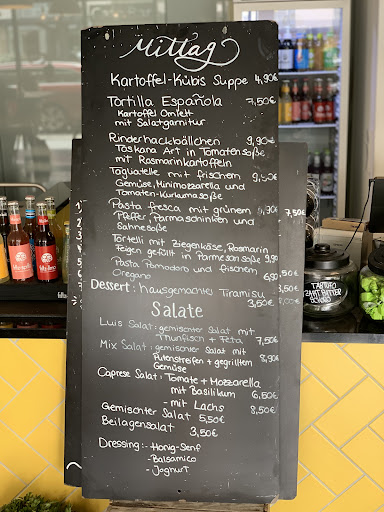 Mittag
Kartoffel-Kübis Suppe 4,90€
Tortilla Española 7,50€
Kartoffel Omlett
mit Salatgarnitur
Rinderhackbällchen 9,90€
Toskana Art in Tomatensoße
mit Rosmarinkartoffeln
Tagliatelle mit frischem 9,50€
Gemüse, Minimozzarella und
Tomaten-Kurkumasoße
Pasta fresca mit grünem 9,90€
Pfeffer, Parmaschinken und
Sahnesoße
Tortelli mit Ziegenkäse, Rosmarin
Feigen gefüllt in Parmesansoße 9,90
Pasta Pomodoro und frischem
Oregano
Dessert: hausgemachte Tiramisu
3,50€
Salate
Luis Salat: gemischter Salat mit
Thunfisch + Feta 7,50
Mix Salat: gemischter Salat mit
Putenstreifen + gegrilltem 8,90€
Gemüse
Caprese Salat: Tomate + Mozzarella
mit Basilikum 6,50€
- mit Lachs 8,50€
Gemischter Salat 5,50€
Beilagensalat 3,50€
Dressing: - Honig-Senf
- Balsamico
- Joghurt
7,50€